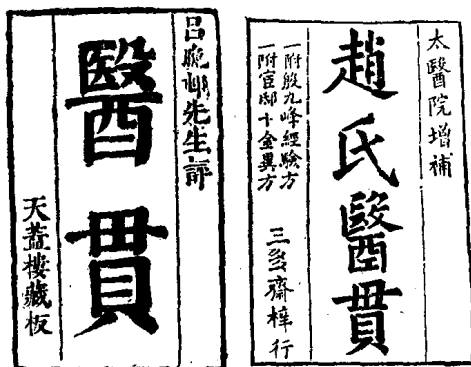 太醫院增補
趙氏醫貫
一附殷九峰經驗方
一附宦邸十金異方
三多齋梓行
吕晚邨先生評
醫貫
天蓋樓藏板